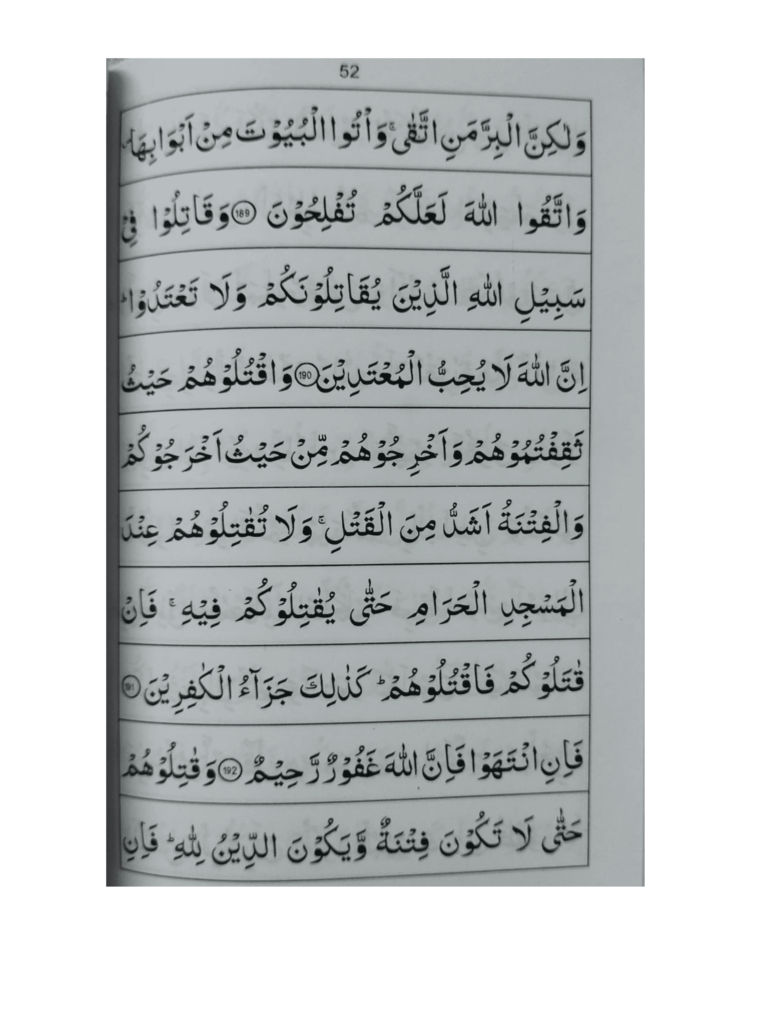 52
وَلٰكِنَّ الْبِرَّ مَنِ اتَّقٰىۚ وَاْتُوا الْبُيُوْتَ مِنْ اَبْوَابِهَا
وَاتَّقُوا اللّٰهَ لَعَلَّكُمْ تُفْلِحُوْنَ 189 وَقَاتِلُوْا فِيْ
سَبِيْلِ اللّٰهِ الَّذِيْنَ يُقَاتِلُوْنَكُمْ وَلَا تَعْتَدُوْاؕ
اِنَّ اللّٰهَ لَا يُحِبُّ الْمُعْتَدِيْنَ 190 وَاقْتُلُوْهُمْ حَيْثُ
ثَقِفْتُمُوْهُمْ وَاَخْرِجُوْهُمْ مِّنْ حَيْثُ اَخْرَجُوْكُمْ
وَالْفِتْنَةُ اَشَدُّ مِنَ الْقَتْلِۚ وَلَا تُقٰتِلُوْهُمْ عِنْدَ
الْمَسْجِدِ الْحَرَامِ حَتّٰى يُقٰتِلُوْكُمْ فِيْهِۚ فَاِنْ
قٰتَلُوْكُمْ فَاقْتُلُوْهُمْؕ كَذٰلِكَ جَزَآءُ الْكٰفِرِيْنَ 191
فَاِنِ انْتَهَوْا فَاِنَّ اللّٰهَ غَفُوْرٌ رَّحِيْمٌ 192 وَقٰتِلُوْهُمْ
حَتّٰى لَا تَكُوْنَ فِتْنَةٌ وَّيَكُوْنَ الدِّيْنُ لِلّٰهِؕ فَاِنِ